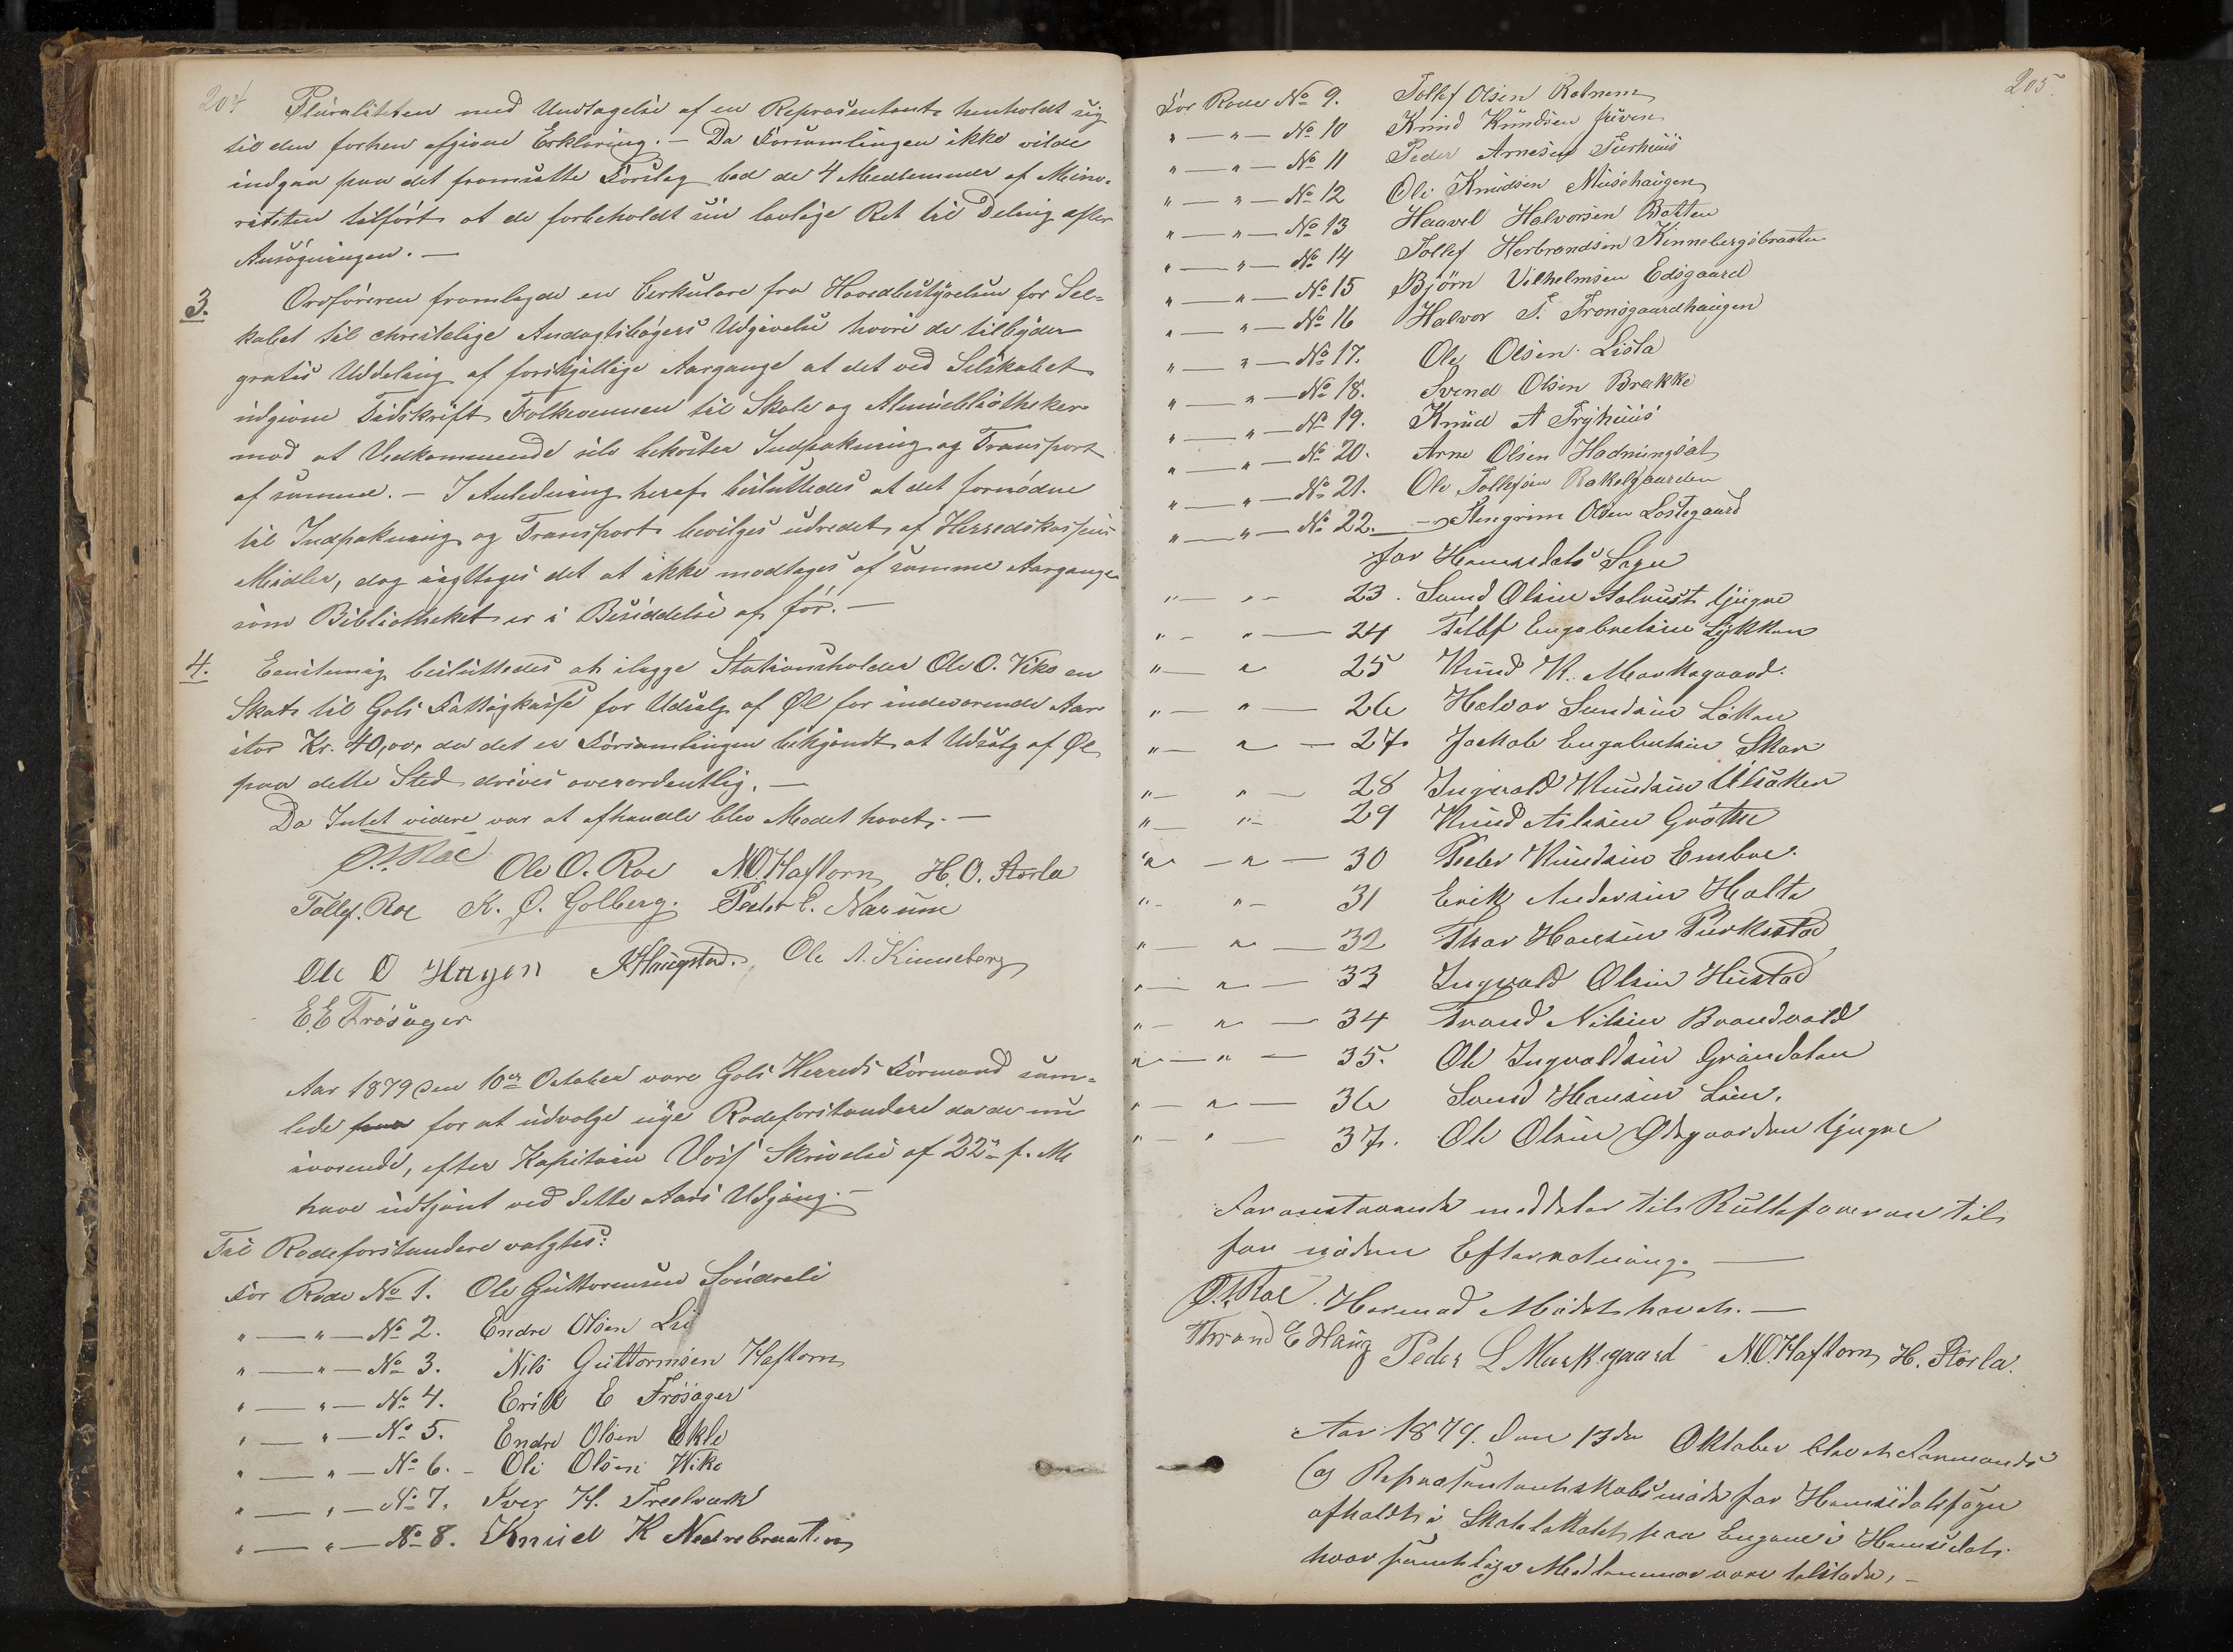 204
Pluraliteten med Undtagelse af en Repræsentant henholdt sig
til den forhen afgivne Erklæring. – Da Forsamlingen ikke vilde
indgaa paa det fremsatte Forslag bad de 4 Medlemmer af Mino-
riteten tilført at de forbeholdt sin lovlige Ret til Deling efter
Ansøgningen. –
3. Ordføreren fremlagde en Cirkulære fra Hovedbestyrelsen for Sel-
skabet til christelige Andagtsbøgers Udgivelse hvori de tilbyder
gratis Uddeling af forskjellige Aargange at det ved Selskabet
udgivne Tidskrift Folkevennen til Skole og Almuebibliotheker
mod at Vedkommende selv bekoster Indpakning og Transport
af samme. – I Anledning heraf besluttedes at det fornødne
til Indpakning og Transport bevilges udredet af Herredskassens
Midler, dog iagttages det at ikke modtages af samme Aargange
som Bibliotheket er i Besiddelse af før. –
4. Eenstemmig besluttedes at ilægge Stationsholder Ole O. Viko en
Skat til Gols Fattigkasse for Udsalg af Øl for indeværende Aar
stor Kr. 40,00, da det er Forsamlingen bekjendt at Udsalg af Øl
paa dette Sted drives overordentlig. –
Da Intet videre var at afhandle blev Mødet hævet. –
O.T. Roe Ole O. Roe N.O. Haftorn H.O. Storla
Tollef Roe K.O. Golberg. Peder E. Narum
Ole O Hagen K Haugstad. Ole A. Kinneberg
E.E Trøsager
Aar 1879 den 10de October vare Gols Herreds Formænd sam-
lede for at udvælge nye Rodeforstandere da de nu
værende, efter Kapitain Voss' Skrivelse af 22de f. M.
have udtjent ved dette Aars Udgang. –
Til Rodeforstandere valgtes:
For Rode No 1. Ole Guttormsen Søndreli
" — " — No 2. Endre Olsen Lie
" — " — No 3. Nils Guttormsen Haftorn
" — " — No 4. Erik E Trøsager
" — " — No 5. Endre Olsen Ekle
" — " — No 6. – Ole Olsen Wiko
" — " — No 7. Iver H.
" — " — No 8. Knud K Nedrebraaten
205.
For Rode No 9. Tollef Olsen Rotnem
" — " — No 10 Knud Knudsen
" — " — No 11 Peder Arnesen
" — " — No 12 Ole Knudsen Musehaugen
" — " — No 13 Haavel Halvorsen Botten
" — " — No 14 Tollef Herbrandsen Kinnebergsbraaten
" — " — No 15 Bjørn Vilhelmsen Edsgaard
" — " — No 16 Halvor T. Tronsgaardhaugen
" — " — No 17. Ole Olsen Lista
" — " — No 18. Svend Olsen Brække
" — " — No 19. Knud A Fryhuus
" — " — No 20. Arne Olsen Hadningsæt
" — " — No 21. Ole Tollefsen Rakelgaarden
" — " — No 22. — Stengrim Olsen Løstegaard
for Hemsedals Sogn
" — " – 23. Svend Olsen Aalrust Gjygne
" – " — 24 Tollef Engebretsen Lykken
" — " 25 Knud K. Markegaard.
" — " — 26 Halvor Svendsen Løken
" — " — 27. Jackob Engebretsen Skar
" — " — 28 Ingvald Knudsen Ulsaker
" — " – 29 Knud Aslesen Grøthe
" — " — 30 Peder Knudsen Embre.
" – " – 31 Erik Andersen Holte
" — " — 32 Thor Hansen Tuvkestad
" — " — 33 Ingvald Olsen Hustad
" – " — 34 Trond Nilsen Brandvold
" — " — 35. Ole Ingvaldsen Grøndalen
" — " — 36 Svend Hansen Lien.
" — " — 37. Ole Olsen Ødegaarden Gjygne
Foranstaaende meddeles til Rulleføreren til
for nøden Efterretning. —
O.T. Roe. Hermed Mødet hævet. —
Thrond E Haug Peder L Markegaard N.O. Haftorn H. Storla.
Aar 1879. den 13de Oktober blev et Formands
og Repræsentantskabsmøde for Hemsedals sogn
afholdt i Skolelokalet paa Engene i Hemsedal
hvor samtlige Medlemmer vare tilstede. –